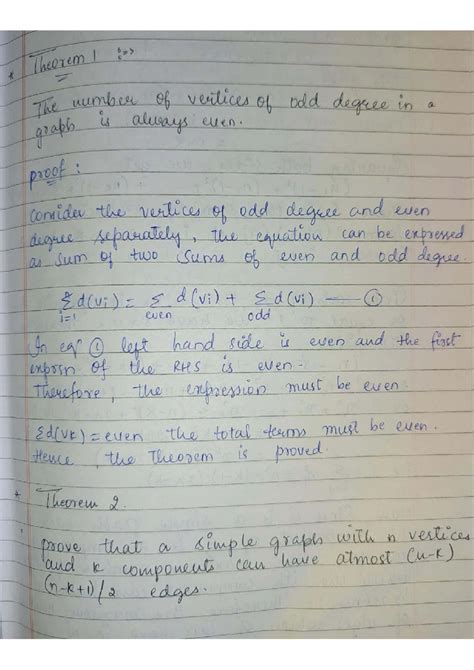 * Theorem 1 :=>
The number of vertices of odd degree in a
graph is always even.
proof :
Consider the vertices of odd degree and even
degree separately, the equation can be expressed
as sum of two sums of even and odd degree.
Σ d(vi) = Σ d(vi) + Σ d(vi) — ①
i=1 even odd
In eqn ① left hand side is even and the first
exprsn of the RHS is even.
Therefore, the expression must be even.
Σd(vk) = even the total terms must be even.
Hence, the Theorem is proved.
* Theorem 2.
prove that a simple graph with n vertices
and k components can have atmost (n-k)
(n-k+1)/2 edges.